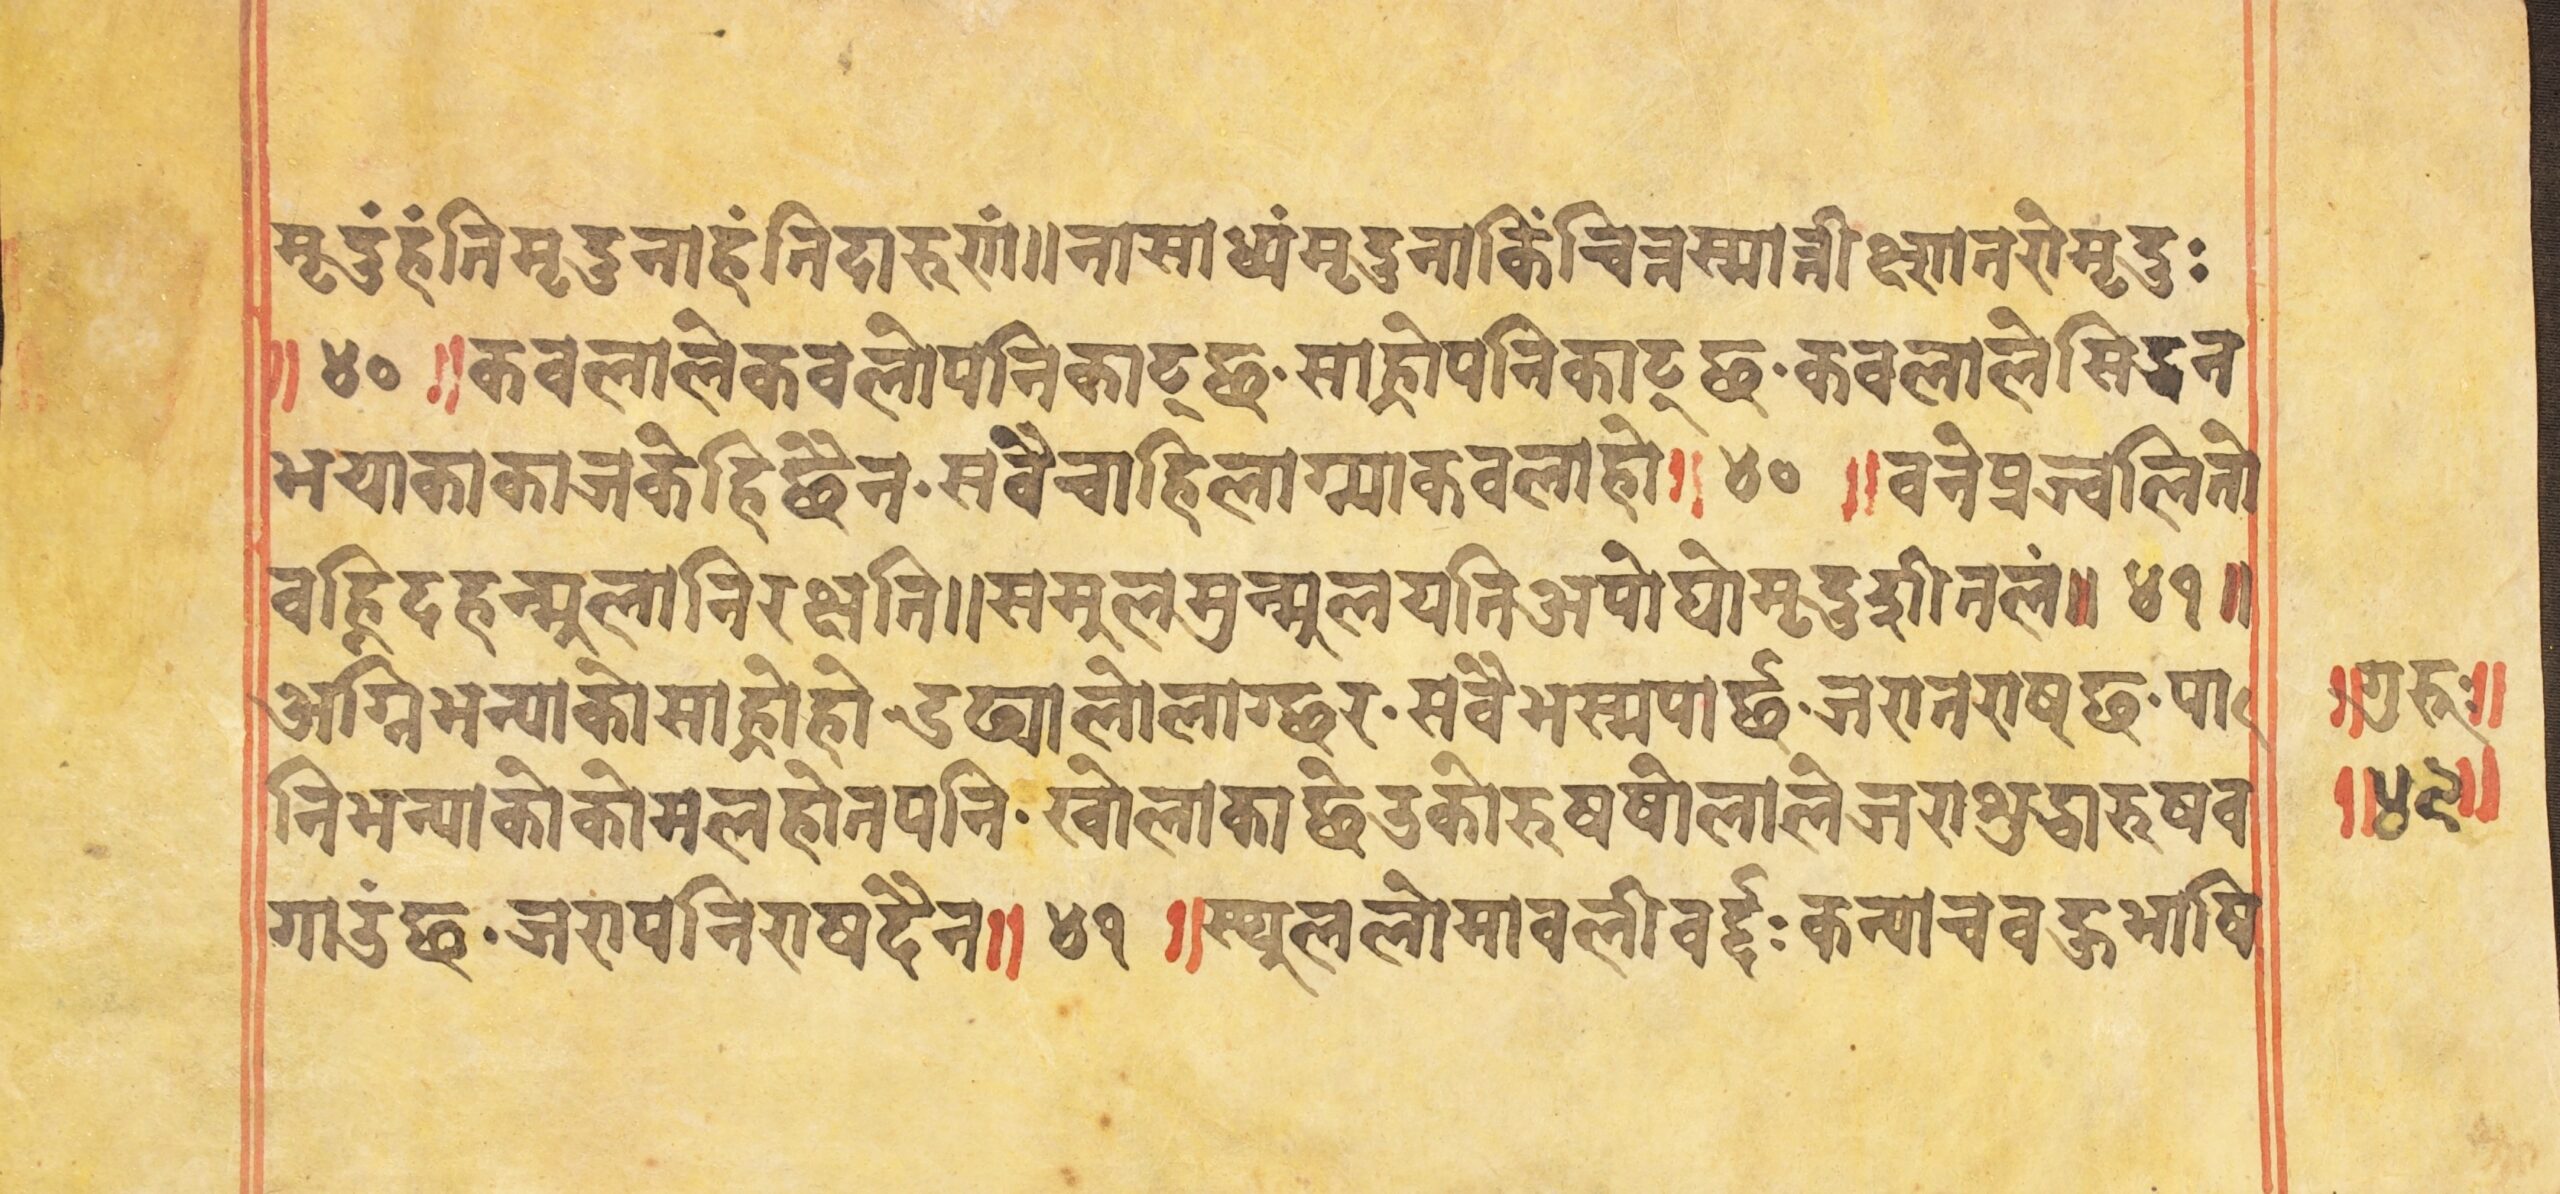 मृदुंहंतिमृदुनाहंतिदारुणं॥नासाध्यंमृदुनाकिंचित्तस्मात्तीक्ष्णतरोमृदुः
॥ ४० ॥कवलालेकवलोपनिकाट्छ·साह्रोपनिकाट्छ·कवलालेसिद्धन
भयाकाकाजकेहिछैन·सवैचाहिलाग्याकवलाहो॥ ४० ॥वनेप्रज्वलितो
वह्निदहन्मुलानिरक्षति॥समुलमुन्मुलयतिअपोघोमृदुशीतलं॥ ४१ ॥
अग्निभन्याकोसाह्रोहो·डढ्यालोलाग्छर·सवैभस्मपार्छ·जरानराष्छ·पा
निभन्याकोकोमलहोतपनि·खोलाकाछेउकोरुषषोलालेजराभुद्धारुषव
गाउंछ·जरापनिराषदैन॥ ४१ ॥स्थुललोमावलीवर्द्दःकन्याचवक्तभाषि
॥गुरुः॥
॥४९॥